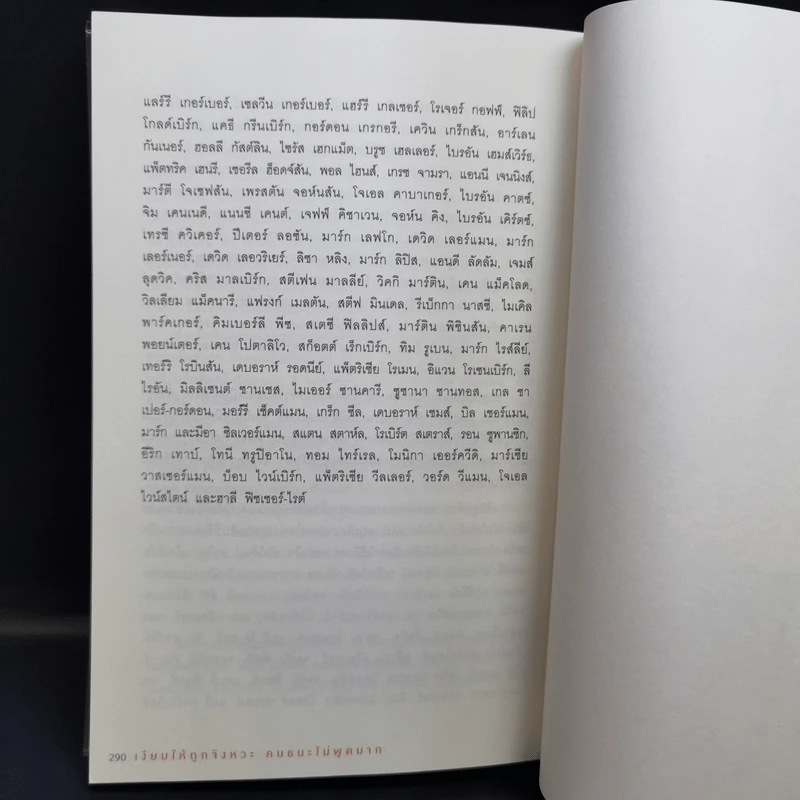 แลร์รี เกอร์เบอร์, เซลวีน เกอร์เบอร์, แฮร์รี เกลเซอร์, โรเจอร์ กอฟฟ์, ฟิลิป
โกลด์เบิร์ก, แคธี กรีนเบิร์ก, กอร์ดอน เกรกอรี, เควิน เกร็กสัน, อาร์เลน
กันเนอร์, ฮอลลี กัสต์ลิน, ไซรัส เฮกแม็ต, บรูซ เฮลเลอร์, ไบรอัน เฮมส์เวิร์ธ,
แพ็ตทริค เฮนรี, เชอรีล ฮ็อดจ์สัน, พอล ไฮนส์, เกรซ จามรา, แอนนี เจนนิงส์,
มาร์ตี โจเซฟสัน, เพรสตัน จอห์นสัน, โจเอล คาบาเกอร์, ไบรอัน คาตซ์,
จิม เคนเนดี, แนนซี เคนต์, เจฟฟ์ คิซาเวน, จอห์น คิง, ไบรอัน เคิร์ตซ์,
เทรซี ควิเคอร์, ปีเตอร์ ลอซัน, มาร์ก เลฟโก, เดวิด เลอร์แมน, มาร์ก
เลอร์เนอร์, เดวิด เลอวริเยร์, ลิซา หลิง, มาร์ก ลิปิส, แอนดี ลัดลัม, เจมส์
ลุดวิค, คริส มาลเบิร์ก, สตีเฟน มาลลีย์, วิคกี มาร์ติน, เคน แม็คโลด,
วิลเลียม แม็คนารี, แฟรงก์ เมลตัน, สตีฟ มินเดล, รีเบ็กกา นาสซี, ไมเคิล
พาร์คเกอร์, คิมเบอร์ลี พีช, สเตซี ฟิลลิปส์, มาร์ติน พิชินสัน, คาเรน
พอยน์เตอร์, เคน โปตาลิโว, สก็อตต์ เร็กเบิร์ก, ทิม รูเบน, มาร์ก ไรส์ลีย์,
เทอร์รี โรบินสัน, เดบอราห์ รอดนีย์, แพ็ตริเซีย โรเมน, อิแวน โรเซนเบิร์ก, ลี
ไรอัน, มิลลิเซนต์ ซานเชส, ไมเออร์ ซานคารี, ซูซานา ซานทอส, เกล ซา
เปอร์-กอร์ดอน, มอร์รี เซ็คต์แมน, เกร็ก ซีล, เดบอราห์ เชมส์, บิล เชอร์แมน,
มาร์ก และมีอา ซิลเวอร์แมน, สแตน สตาห์ล, โรเบิร์ต สเตราส์, รอน ซูพานซิก,
อีริก เทาบ์, โทนี ทรูปิอาโน, ทอม ไทร์เรล, โมนิกา เออร์ควีดี, มาร์เซีย
วาสเซอร์แมน, บ็อบ ไวน์เบิร์ก, แพ็ตริเซีย วีลเลอร์, วอร์ด วีแมน, โจเอล
ไวน์สไตน์ และฮาลี ฟิชเชอร์-ไรต์
290 เงียบให้ถูกจังหวะ คนชนะไม่พูดมาก